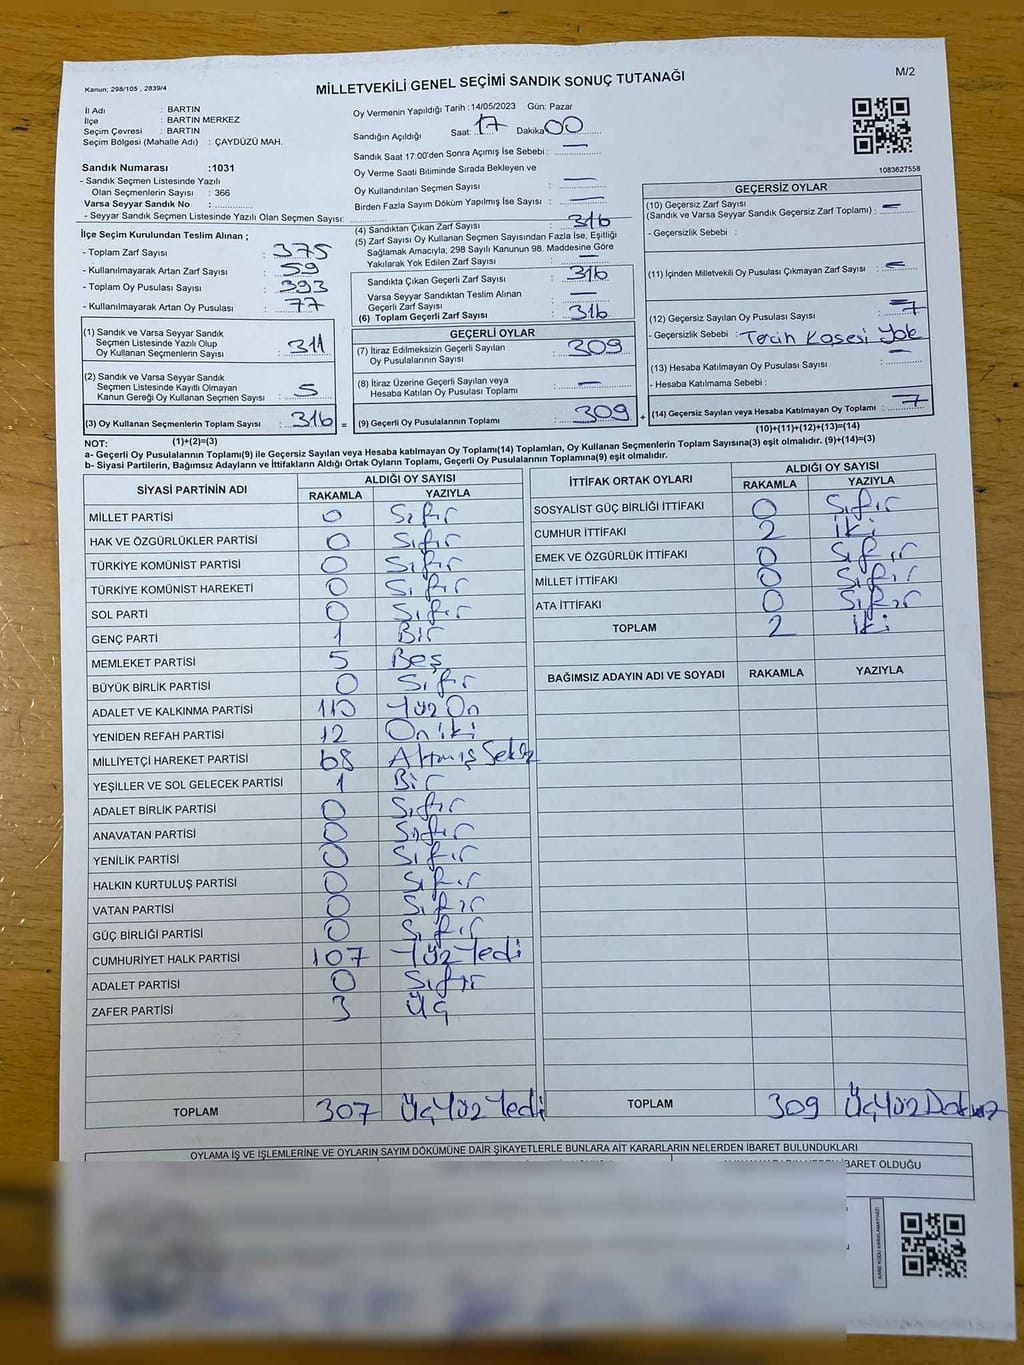 Kanun; 298/105 , 2839/4
MİLLETVEKİLİ GENEL SEÇİMİ SANDIK SONUÇ TUTANAĞI
M/2
İl Adı : BARTIN
İlçe : BARTIN MERKEZ
Seçim Çevresi : BARTIN
Seçim Bölgesi (Mahalle Adı) : ÇAYDÜZÜ MAH.
Sandık Numarası :1031
- Sandık Seçmen Listesinde Yazılı
Olan Seçmenlerin Sayısı : 366
Varsa Seyyar Sandık No :
- Seyyar Sandık Seçmen Listesinde Yazılı Olan Seçmen Sayısı:
Oy Vermenin Yapıldığı Tarih :14/05/2023 Gün: Pazar
Sandığın Açıldığı Saat: 17 Dakika 00
Sandık Saat 17:00'den Sonra Açımış İse Sebebi : —
Oy Verme Saati Bitiminde Sırada Bekleyen ve
Oy Kullandırılan Seçmen Sayısı —
Birden Fazla Sayım Döküm Yapılmış İse Sayısı : —
1083627558
İlçe Seçim Kurulundan Teslim Alınan ;
- Toplam Zarf Sayısı : 375
- Kullanılmayarak Artan Zarf Sayısı : 59
- Toplam Oy Pusulası Sayısı : 393
- Kullanılmayarak Artan Oy Pusulası : 77
(1) Sandık ve Varsa Seyyar Sandık
Seçmen Listesinde Yazılı Olup
Oy Kullanan Seçmenlerin Sayısı : 311
(2) Sandık ve Varsa Seyyar Sandık
Seçmen Listesinde Kayıtlı Olmayan
Kanun Gereği Oy Kullanan Seçmen Sayısı : 5
(3) Oy Kullanan Seçmenlerin Toplam Sayısı : 316 =
(4) Sandıktan Çıkan Zarf Sayısı : 316
(5) Zarf Sayısı Oy Kullanan Seçmen Sayısından Fazla İse, Eşitliği
Sağlamak Amacıyla; 298 Sayılı Kanunun 98. Maddesine Göre
Yakılarak Yok Edilen Zarf Sayısı : —
Sandıkta Çıkan Geçerli Zarf Sayısı : 316
Varsa Seyyar Sandıktan Teslim Alınan
Geçerli Zarf Sayısı : —
(6) Toplam Geçerli Zarf Sayısı : 316
GEÇERLİ OYLAR
(7) İtiraz Edilmeksizin Geçerli Sayılan
Oy Pusulalarının Sayısı : 309
(8) İtiraz Üzerine Geçerli Sayılan veya
Hesaba Katılan Oy Pusulası Toplamı : —
(9) Geçerli Oy Pusulalarının Toplamı : 309 +
GEÇERSİZ OYLAR
(10) Geçersiz Zarf Sayısı
(Sandık ve Varsa Seyyar Sandık Geçersiz Zarf Toplamı) : —
- Geçersizlik Sebebi :
(11) İçinden Milletvekili Oy Pusulası Çıkmayan Zarf Sayısı : —
(12) Geçersiz Sayılan Oy Pusulası Sayısı : 7
- Geçersizlik Sebebi : Tercih Kasesi Yok
(13) Hesaba Katılmayan Oy Pusulası Sayısı : —
- Hesaba Katılmama Sebebi :
(14) Geçersiz Sayılan veya Hesaba Katılmayan Oy Toplamı : 7
(10)+(11)+(12)+(13)=(14)
NOT: (1)+(2)=(3)
a- Geçerli Oy Pusulalarının Toplamı(9) ile Geçersiz Sayılan veya Hesaba katılmayan Oy Toplamı(14) Toplamları, Oy Kullanan Seçmenlerin Toplam Sayısına(3) eşit olmalıdır. (9)+(14)=(3)
b- Siyasi Partilerin, Bağımsız Adayların ve İttifakların Aldığı Ortak Oyların Toplamı, Geçerli Oy Pusulalarının Toplamına(9) eşit olmalıdır.
SİYASİ PARTİNİN ADI ALDIĞI OY SAYISI
RAKAMLA YAZIYLA
MİLLET PARTİSİ 0 Sıfır
HAK VE ÖZGÜRLÜKLER PARTİSİ 0 Sıfır
TÜRKİYE KOMÜNİST PARTİSİ 0 Sıfır
TÜRKİYE KOMÜNİST HAREKETİ 0 Sıfır
SOL PARTİ 0 Sıfır
GENÇ PARTİ 1 Bir
MEMLEKET PARTİSİ 5 Beş
BÜYÜK BİRLİK PARTİSİ 0 Sıfır
ADALET VE KALKINMA PARTİSİ 110 Yüz On
YENİDEN REFAH PARTİSİ 12 On iki
MİLLİYETÇİ HAREKET PARTİSİ 68 Altmış Sekiz
YEŞİLLER VE SOL GELECEK PARTİSİ 1 Bir
ADALET BİRLİK PARTİSİ 0 Sıfır
ANAVATAN PARTİSİ 0 Sıfır
YENİLİK PARTİSİ 0 Sıfır
HALKIN KURTULUŞ PARTİSİ 0 Sıfır
VATAN PARTİSİ 0 Sıfır
GÜÇ BİRLİĞİ PARTİSİ 0 Sıfır
CUMHURİYET HALK PARTİSİ 107 Yüz Yedi
ADALET PARTİSİ 0 Sıfır
ZAFER PARTİSİ 3 Üç
TOPLAM 307 ÜçYüz Yedi
İTTİFAK ORTAK OYLARI ALDIĞI OY SAYISI
RAKAMLA YAZIYLA
SOSYALİST GÜÇ BİRLİĞİ İTTİFAKI 0 Sıfır
CUMHUR İTTİFAKI 2 İki
EMEK VE ÖZGÜRLÜK İTTİFAKI 0 Sıfır
MİLLET İTTİFAKI 0 Sıfır
ATA İTTİFAKI 0 Sıfır
TOPLAM 2 İki
BAĞIMSIZ ADAYIN ADI VE SOYADI RAKAMLA YAZIYLA
TOPLAM 309 ÜçYüz Dokuz
OYLAMA İŞ VE İŞLEMLERİNE VE OYLARIN SAYIM DÖKÜMÜNE DAİR ŞİKAYETLERLE BUNLARA AİT KARARLARIN NELERDEN İBARET BULUNDUKLARI
İBARET OLDUĞU